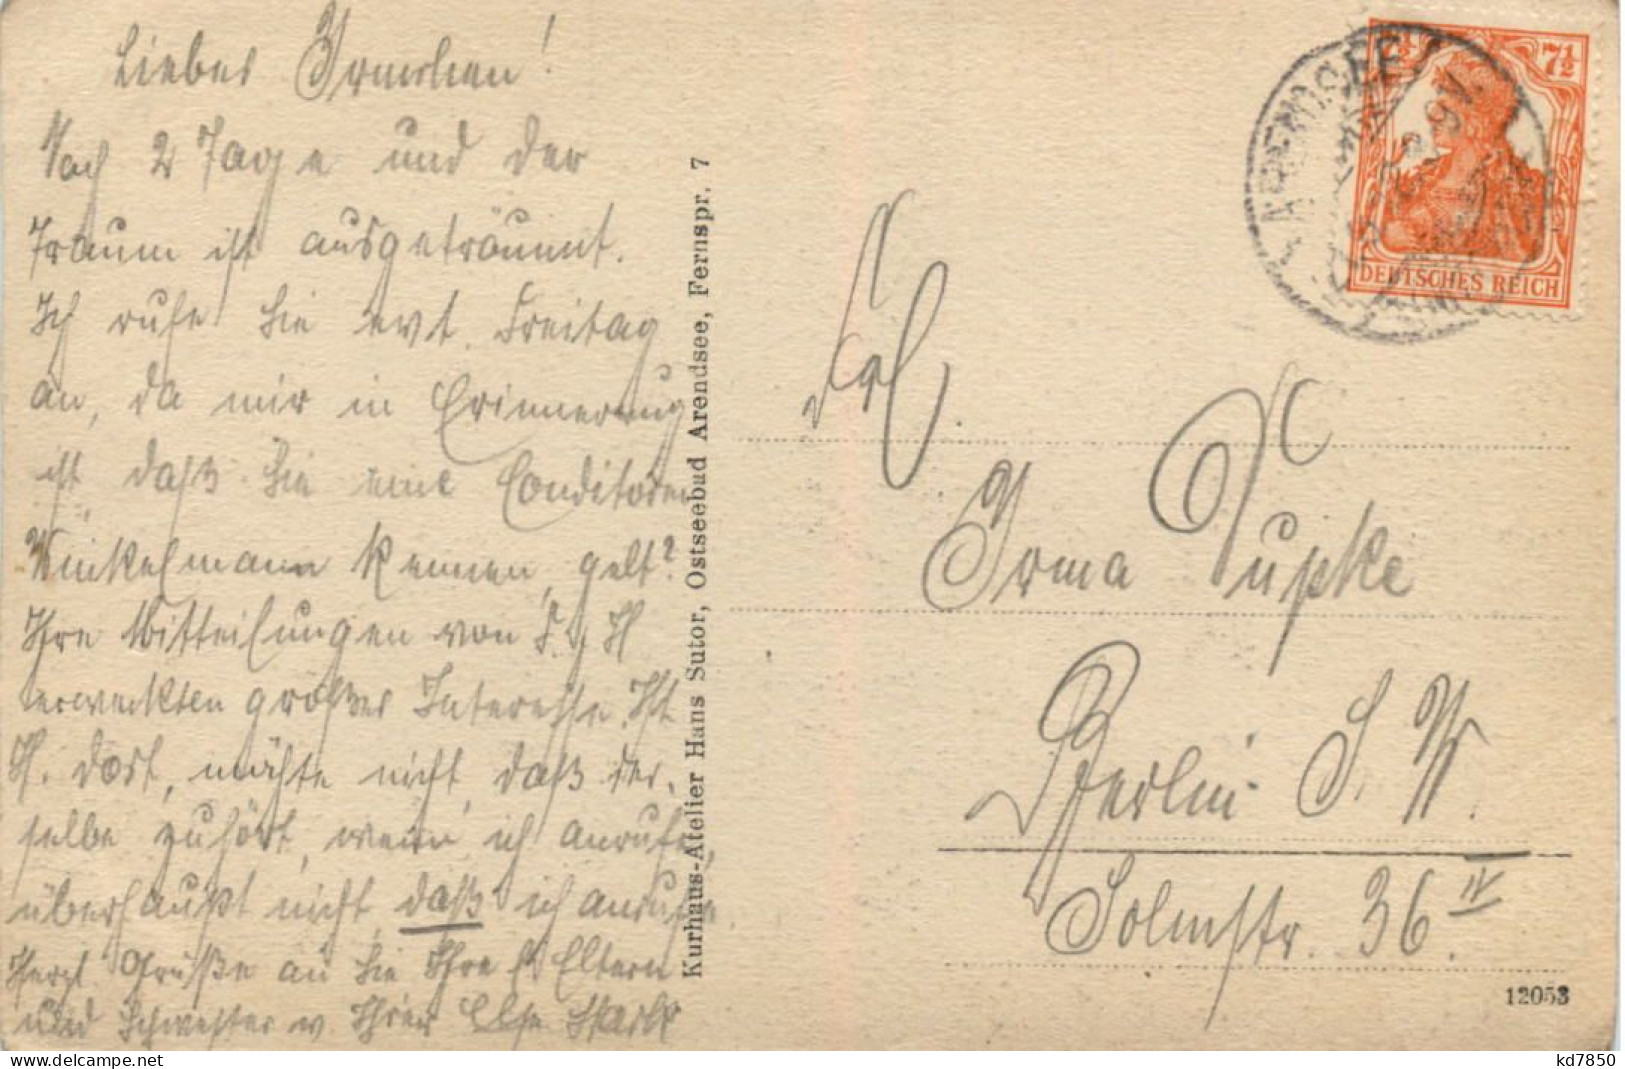 Liebes Irmchen!
Noch 2 Tage und der
Traum ist ausgeträumt.
Ich rufe Sie evt. Freitag
an, da mir in Erinnerung
ist, daß Sie eine Conditorei
Winkelmann kennen, gelt?
Ihre Mitteilungen von F. H
erweckten großes Interesse. Ist
H. dort, möchte nicht, daß der-
selbe zuhört, wenn ich anrufe,
überhaupt nicht, daß ich anrufe.
Herzl. Grüße an Sie Ihre Eltern
und Schwester v. Ihrer Else
Kurhaus-Atelier Hans Sutor, Ostseebad Arendsee, Fernspr. 7
ARENDSEE
7½ 7½
DEUTSCHES REICH
Frl.
Irma Pupke
Berlin S.W.
Solmsstr. 36 IV
12053
kd7850